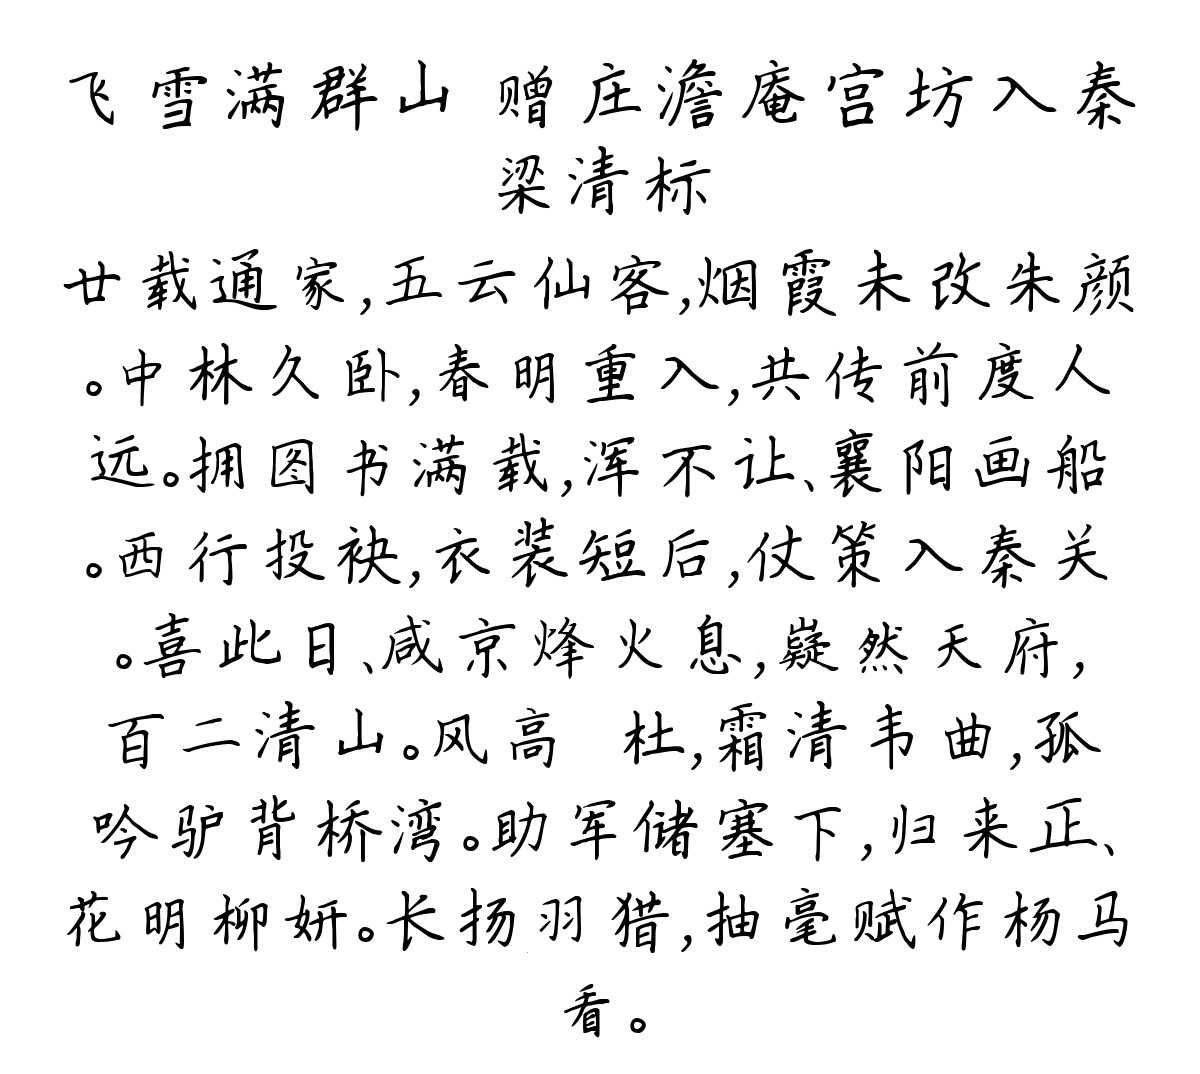 飞雪满群山 赠庄澹庵宫坊入秦
梁清标
廿载通家,五云仙客,烟霞未改朱颜
。中林久卧,春明重入,共传前度人
远。拥图书满载,浑不让、襄阳画船
。西行投袂,衣装短后,仗策入秦关
。喜此日、咸京烽火息,嶷然天府,
百二清山。风高 杜,霜清韦曲,孤
吟驴背桥湾。助军储塞下,归来正、
花明柳妍。长扬羽猎,抽毫赋作杨马
看。